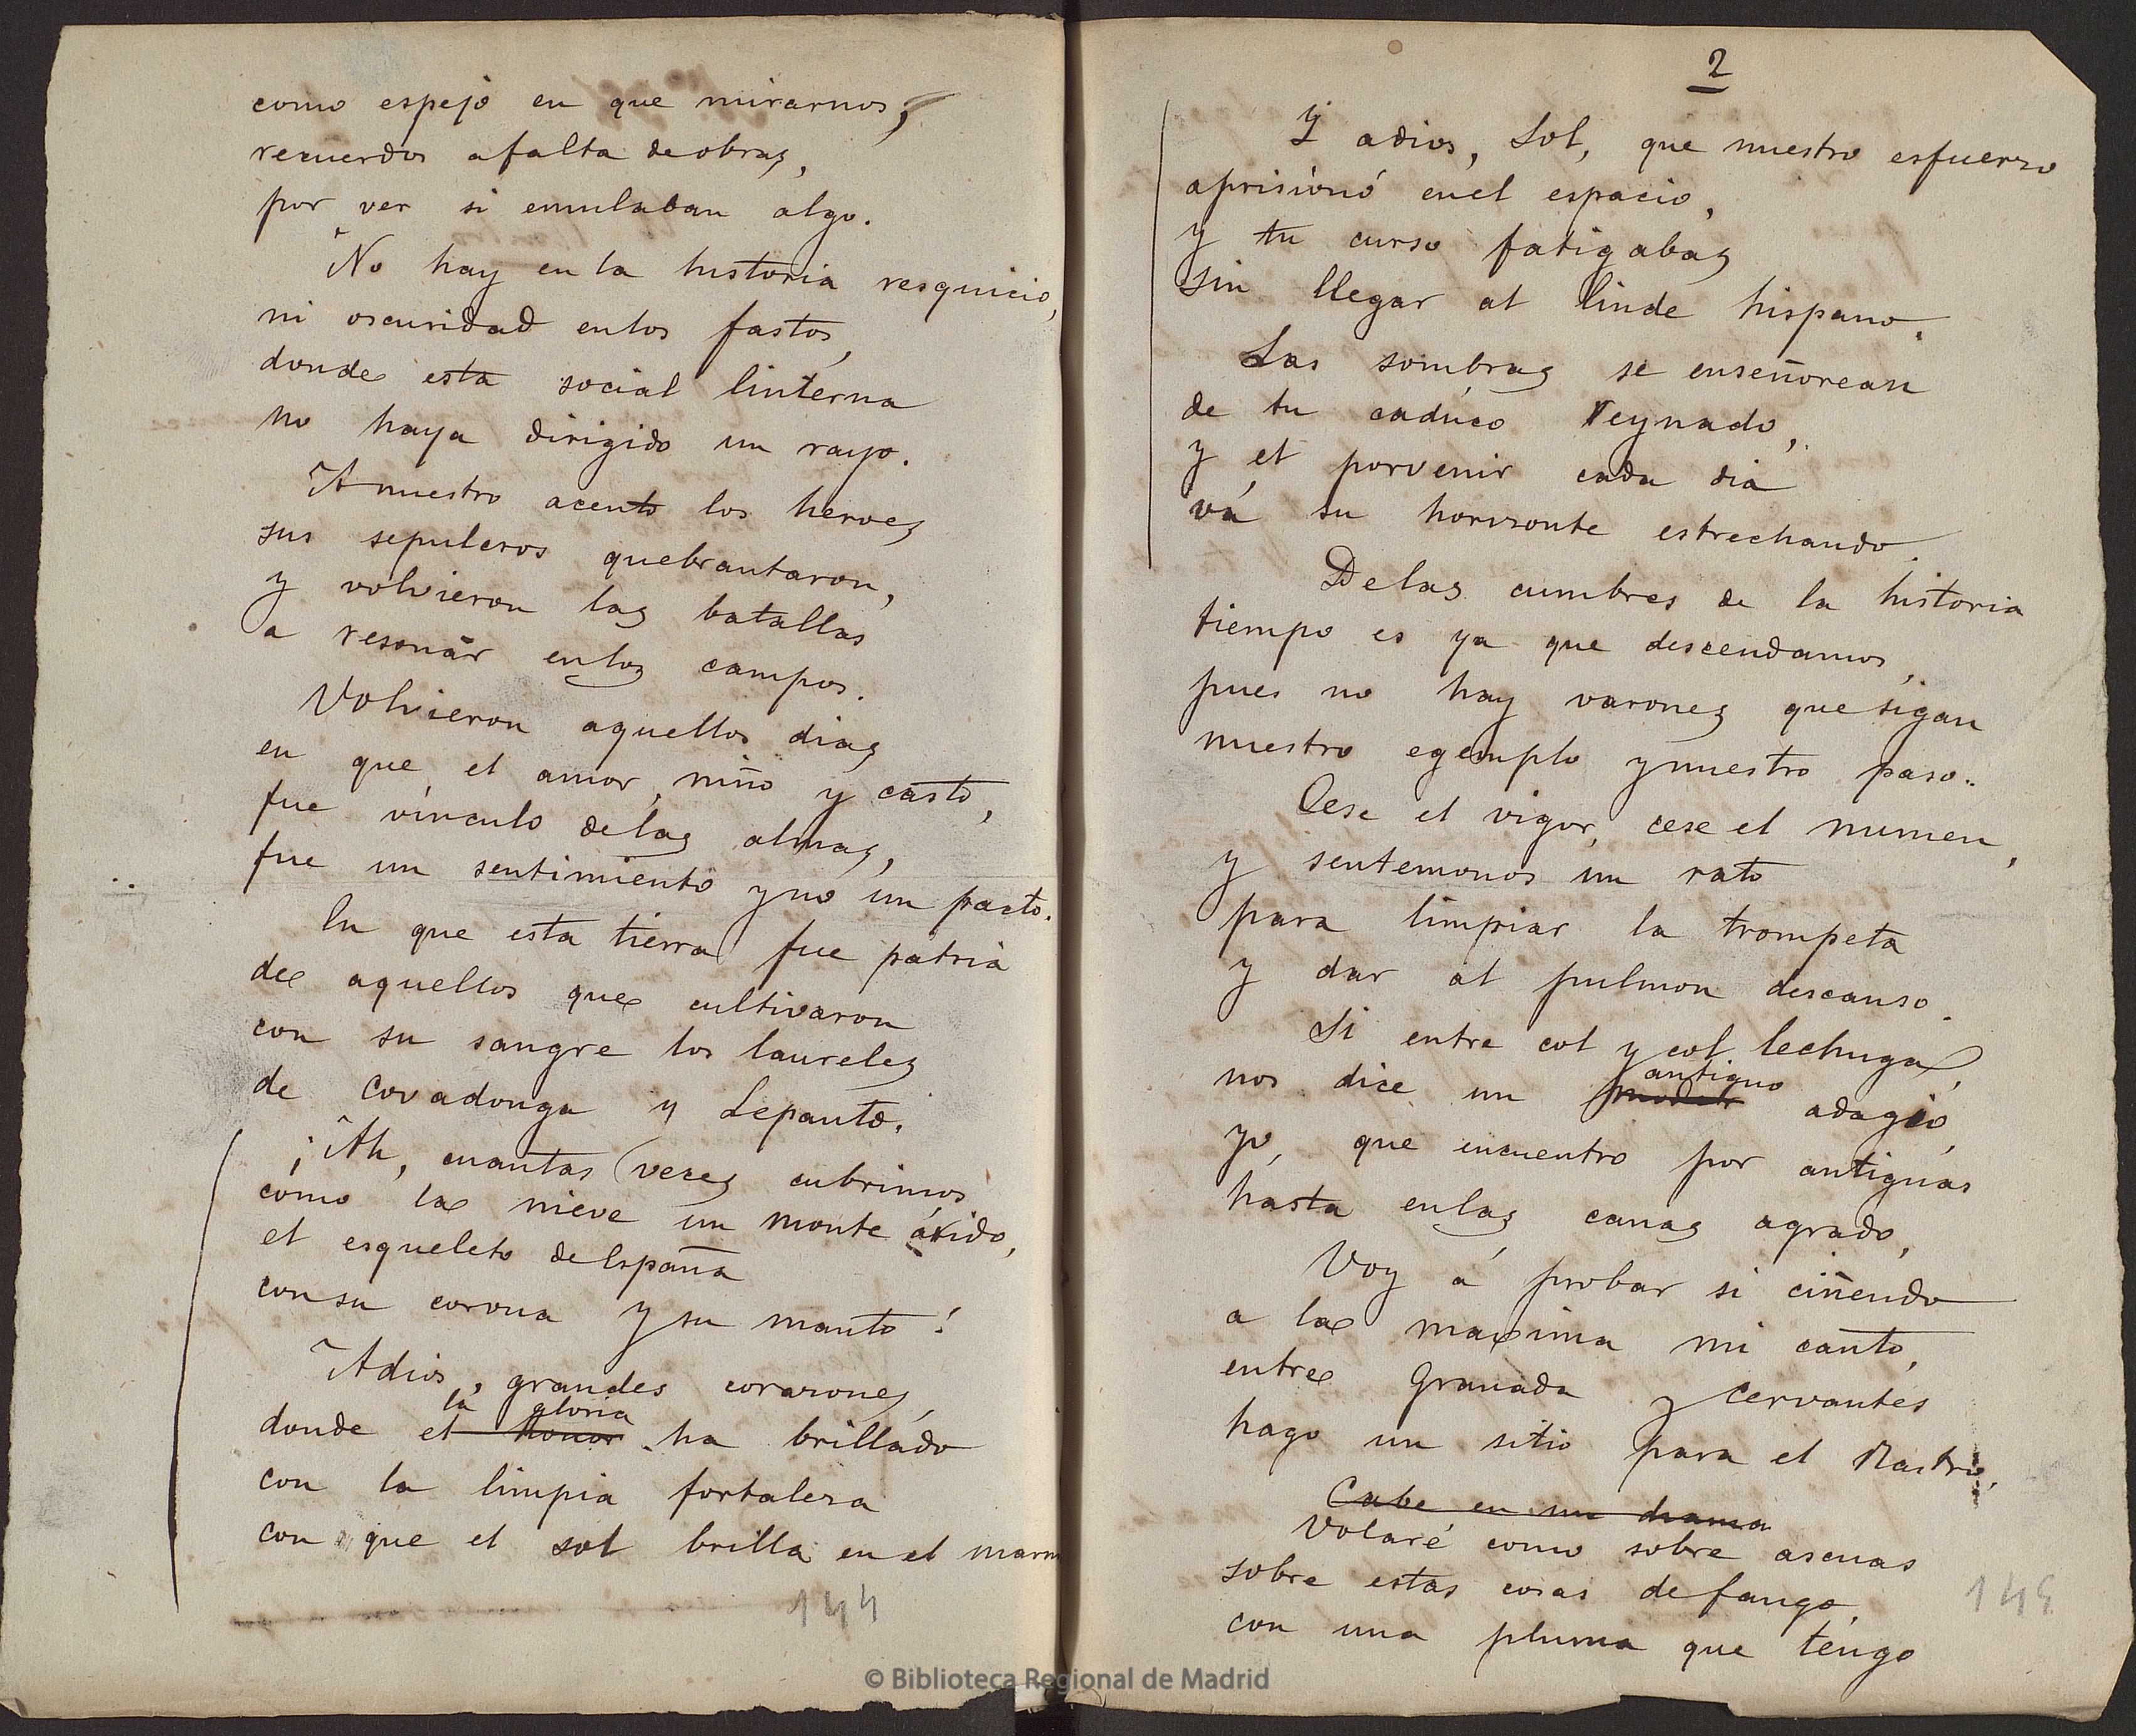 como espejo en que mirarnos,
recuerdos a falta de obras,
por ver si emulaban algo.
No hay en la historia resquicio,
ni oscuridad en los fastos,
donde esta social linterna
no haya dirigido un rayo.
A nuestro acento los heroes
sus sepulcros quebrantaron,
y volvieron las batallas
a resonar en los campos.
Volvieron aquellos dias
en que el amor, niño y casto,
fue vínculo de las almas,
fue un sentimiento y no un pacto.
En que esta tierra fue patria
de aquellos que cultivaron
con su sangre los laureles
de Covadonga y Lepanto.
¡Ah, cuantas veces cubrimos
como la nieve un monte árido,
el esqueleto de España
con su corona y su manto!
Adios, grandes corazones,
la gloria
donde el honor ha brillado
con la limpia fortaleza
con que el sol brilla en el marm
144
2
Y adios, Sol, que nuestro esfuerzo
aprisionó en el espacio,
y tu curso fatigabas
sin llegar al linde hispano.
Las sombras se enseñorean
de tu caduco reynado,
y el porvenir cada dia
vá su horizonte estrechando.
De las cumbres de la historia
tiempo es ya que descendamos,
pues no hay varones que sigan
nuestro egemplo y nuestro paso.
Cese el vigor, cese el numen,
y sentemonos un rato
para limpiar la trompeta
y dar al pulmon descanso.
Si entre col y col lechuga,
antiguo
nos dice un adagio,
yo, que encuentro por antiguas
hasta en las canas agrado,
Voy á probar si ciñendo
a la maxima mi canto,
entre Granada y Cervantes
hago un sitio para el Rastro.
Cabe en un drama
Volaré como sobre ascuas
sobre estas cosas de fango,
con una pluma que tengo
145
© Biblioteca Regional de Madrid